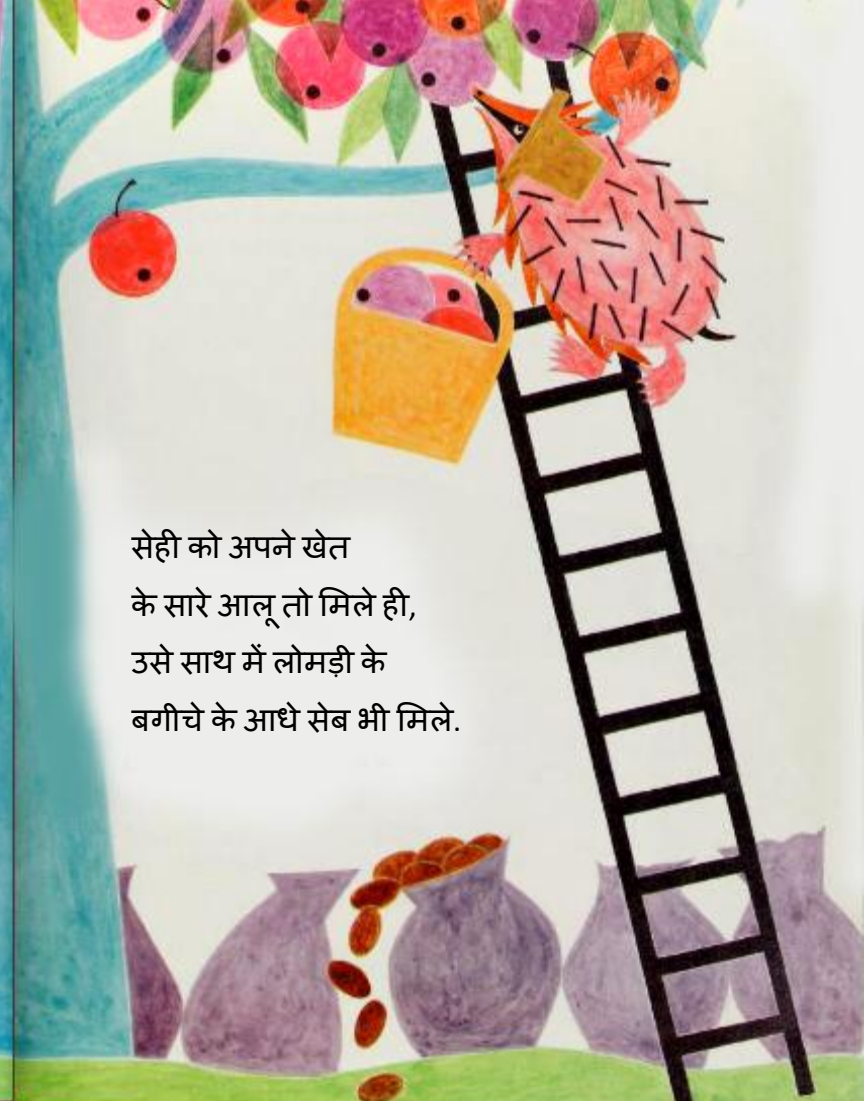 सेही को अपने खेत
के सारे आलू तो मिले ही,
उसे साथ में लोमड़ी के
बगीचे के आधे सेब भी मिले.